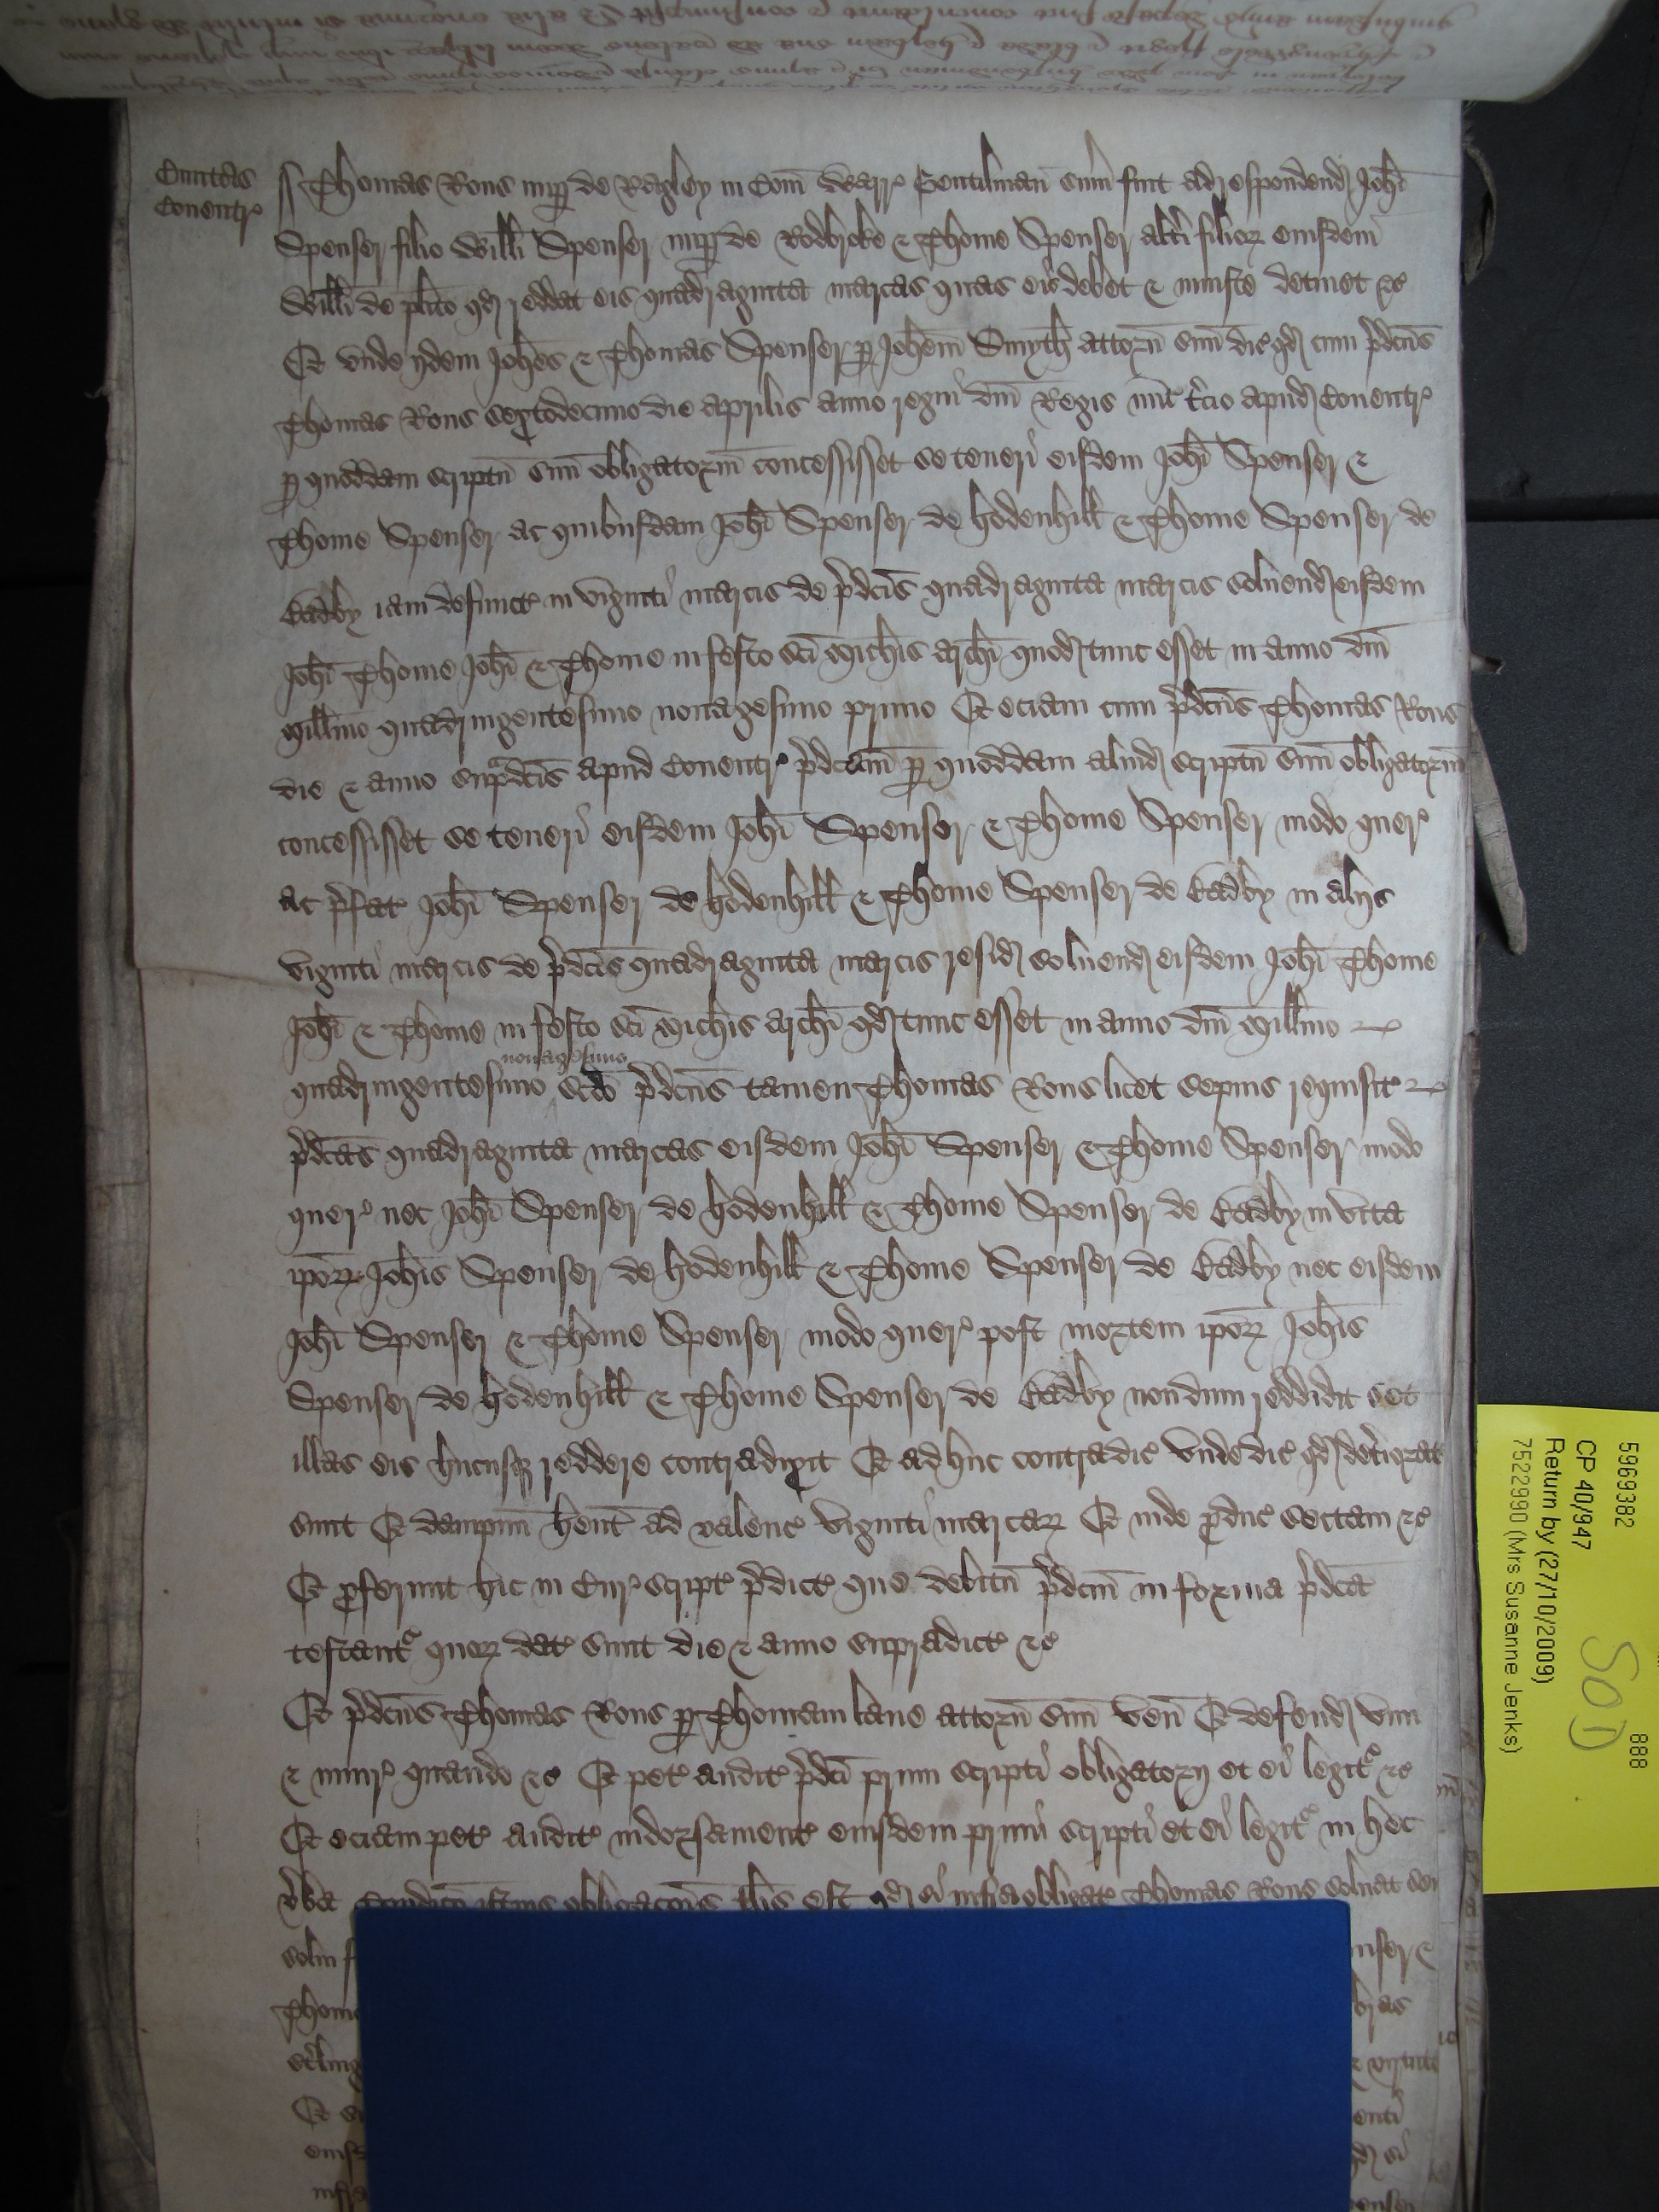 Ciuitas
Couentr'
ss Thomas Rous nup de Ragley in Com Warr' Gentilman sum fuit ad respondend Johi
Spenser filio Willi Spenser nup de Rodbroke & Thome Spenser alti filioꝝ eiusdem
Willi de plito qd reddat eis quadraginta marcas quas eis debet & iniuste detinet &c
Et vnde ijdem Johes & Thomas Spenser p Johem Smyth attorn suu dic qd cum pdcus
Thomas Rous sextodecimo die aprilis anno regni dni Regis nuc tcio apud Couentr'
p quoddam scriptu suu obligatoriu concessisset se teneri eisdem Johi Spenser &
Thome Spenser ac quibusdam Johi Spenser de hodenhill & Thome Spenser de
Badby iam defunct' in viginti marcis de pdcis quadraginta marcis soluend eisdem
Johi Thome Johi & Thome in festo sci Michis archi quod tunc esset in anno dni
Millimo quadringentesimo nonagesimo primo Et eciam cum pdcus Thomas Rous
die & anno supdcis apud Couentr' pdcam p quoddam aliud scriptu suu obligatoriu
concessisset se teneri eisdem Johi Spenser & Thome Spenser modo quer'
ac pfat' Johi Spenser de hodenhill & Thome Spenser de Badby in alijs
viginti marcis de pdcis quadraginta marcis resid soluend eisdem Johi Thome
Johi & Thome in festo sci Michis archi qd tunc esset in anno dni Millimo
nonagesimo
quadringentesimo scdo pdcus tamen Thomas Rous licet sepius requisit'
pdcas quadraginta marcas eisdem Johi Spenser & Thome Spenser modo
quer' nec Johi Spenser de hodenhill & Thome Spenser de Badby in vita
ipoꝝ Johis Spenser de hodenhill & Thome Spenser de Badby nec eisdem
Johi Spenser & Thome Spenser modo quer' post mortem ipoꝝ Johis
Spenser de hodenhill & Thome Spenser de Badby nondum reddidit set
illas eis hucusqꝫ reddere contradixit Et adhuc contradic' vnde dic' qd detiorat
sunt Et dampnu hent ad valenc' viginti marcaꝝ Et inde pduc' sectam &c
Et pferunt hic in Cur' script' pdict' que debitu pdcm in forma pdca
testant' quoꝝ dat' sunt die & anno supradict' &c
Et pdcus Thomas Rous p Thomam lane attorn suu ven Et defend vim
& iniur' quando &c Et pet' audit' pdci primi scripti obligatorij et ei legit' &c
Et eciam pet' audit' indorsament' eiusdem primi scripti et ei legit' in hec
vba Condico istius obligacois tlis est qd si infraobligat' Thomas Rous soluat
solui
nser &
Thome
& virtute
Et
enti
eius
qd si
infra
5969382
888
CP 40/947
Return by (27/10/2009)
7522990 (Mrs Susanne Jenks)